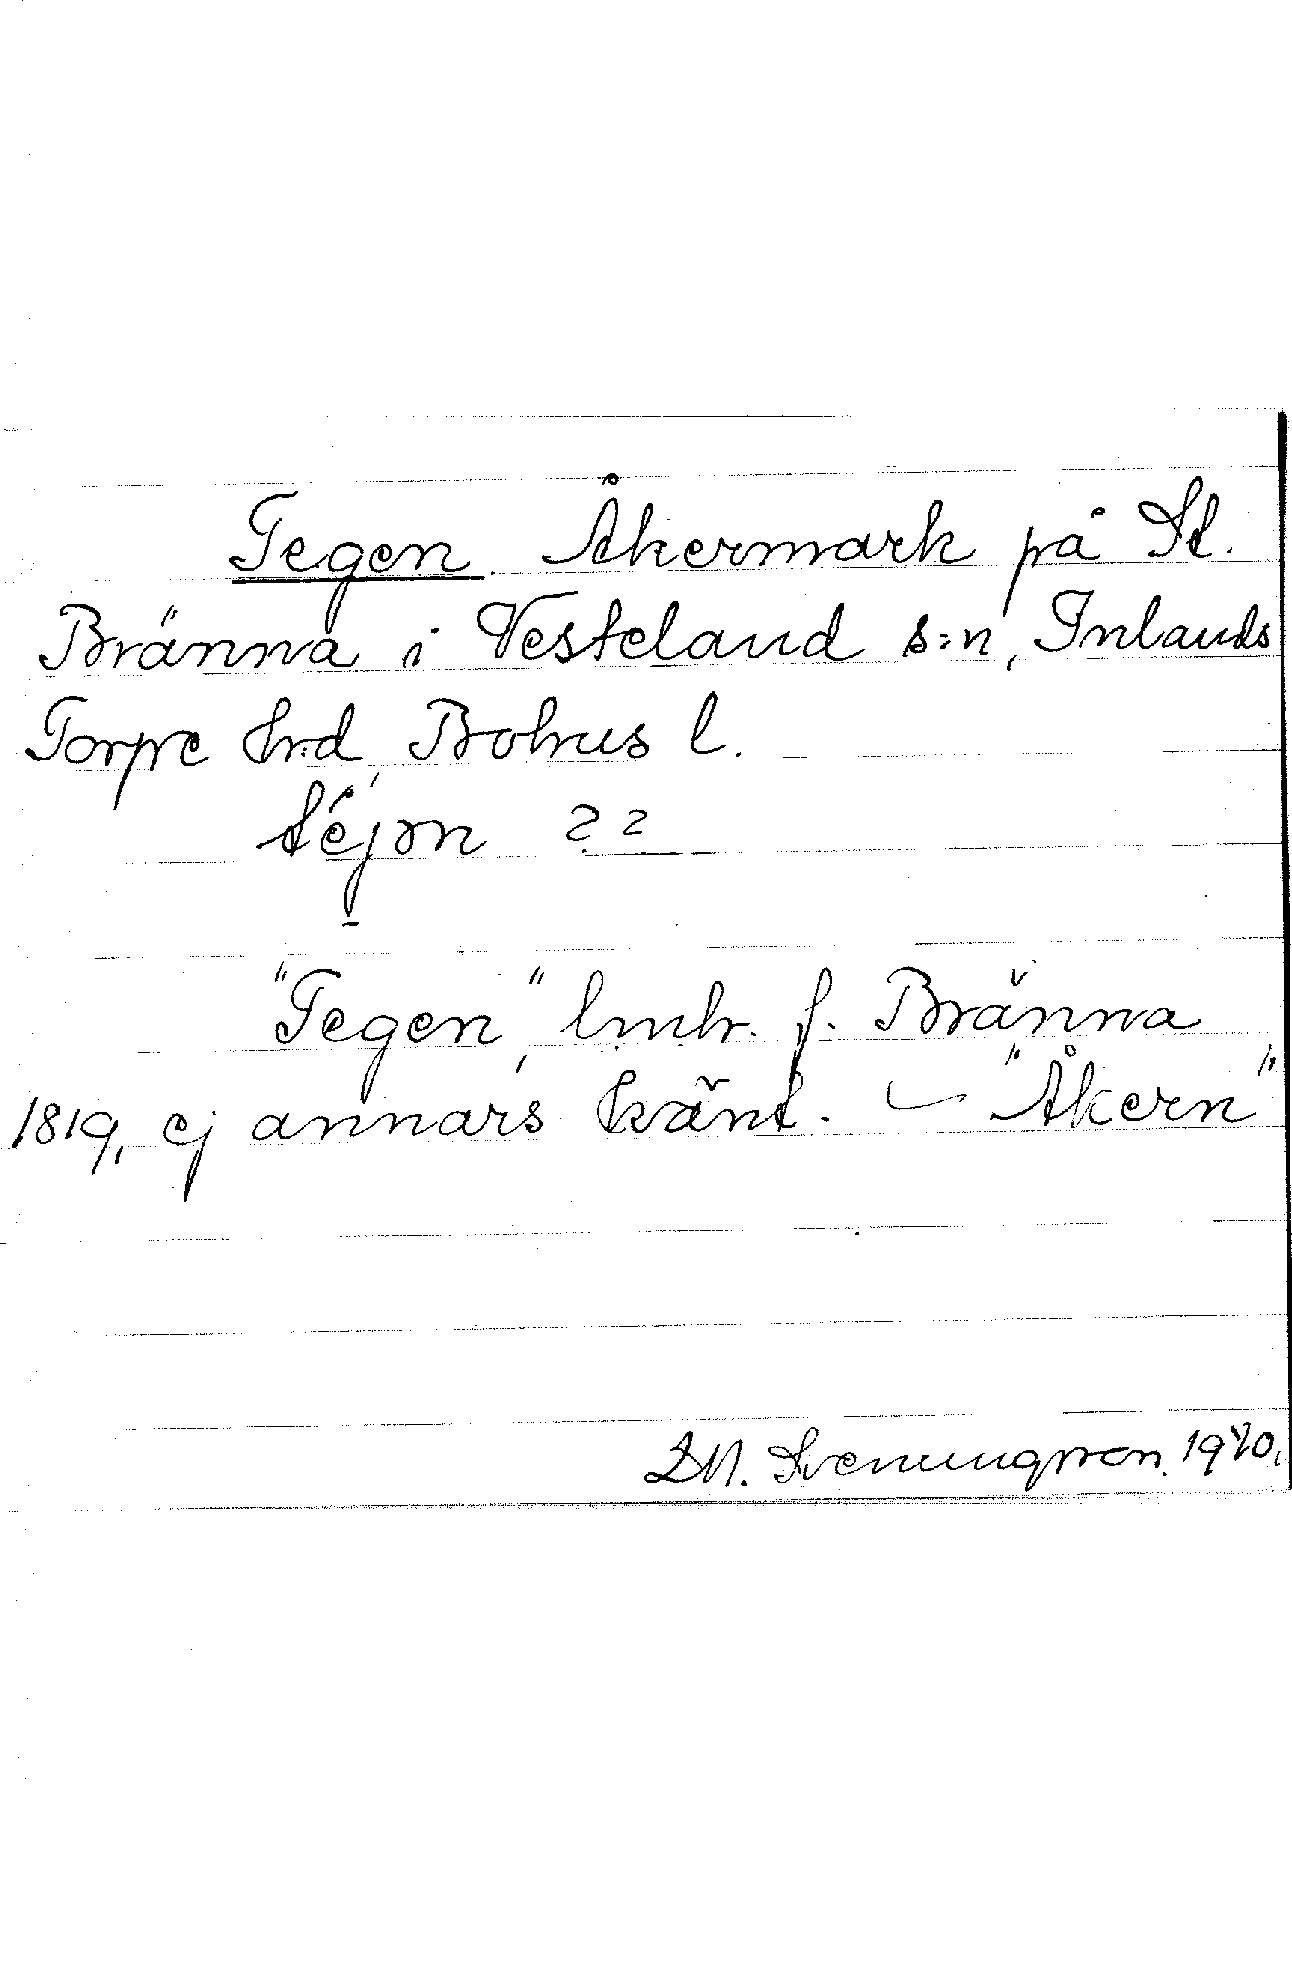 Tegen. Åkermark på St.
Bränna i Vesteland s:n, Inlands
Torpe hrd, Bohus l.
téjɘn ??
"Tegen", lmhr. f. Bränna
1819, ej annars känt. – "Åkern"
D.N. Svenungsson. 1970.